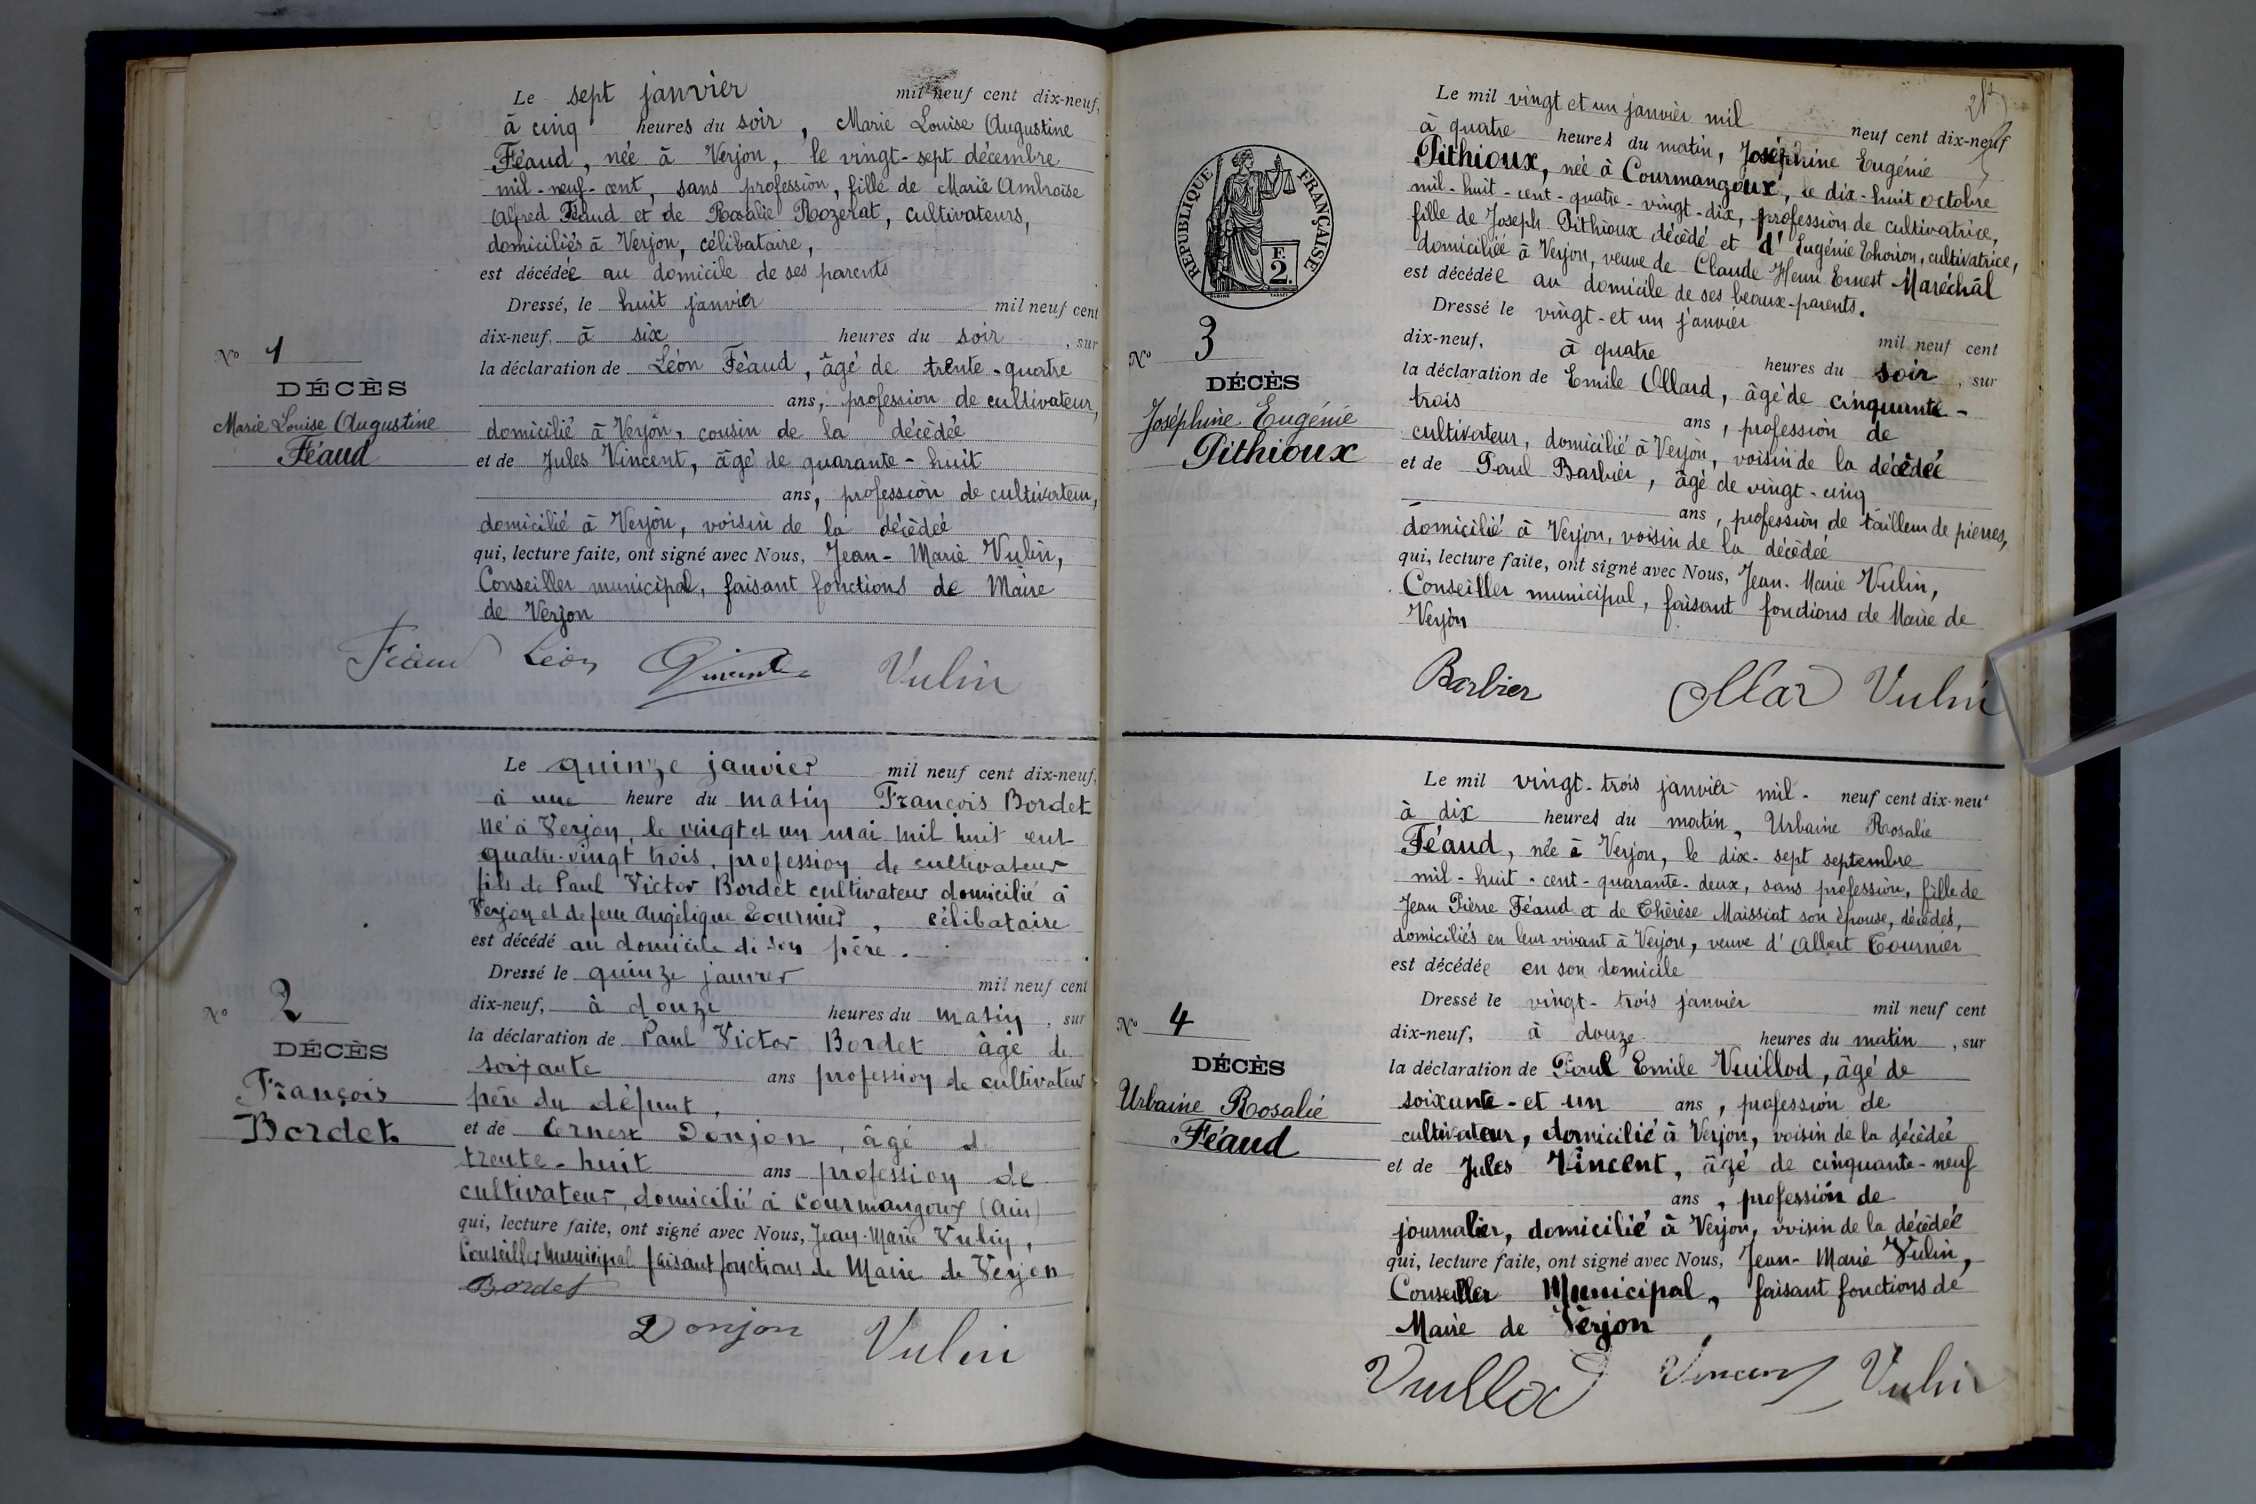 Le sept janvier mil neuf cent dix-neuf,
à cinq heures du soir, Marie Louise Augustine
Féaud, née à Verjon, le vingt-sept décembre
mil-neuf-cent, sans profession, fille de Marie Ambroise
Alfred Féaud et de Rosalie Rozerat, cultivateurs,
domiciliés à Verjon, célibataire,
est décédée au domicile de ses parents
Dressé, le huit janvier mil neuf cent
dix-neuf, à six heures du soir, sur
la déclaration de Léon Féaud, âgé de trente-quatre
ans, profession de cultivateur,
domicilié à Verjon, cousin de la décédée
et de Jules Vincent, âgé de quarante-huit
ans, profession de cultivateur,
domicilié à Verjon, voisin de la décédée
qui, lecture faite, ont signé avec Nous, Jean-Marie Vulin,
Conseiller municipal, faisant fonctions de Maire
de Verjon
No 1
DÉCÈS
Marie Louise Augustine
Féaud
Féaud Léon Vulin
Le quinze janvier mil neuf cent dix-neuf,
à une heure du matin François Bordet
né à Verjon, le vingt et un mai mil huit cent
quatre-vingt trois, profession de cultivateur
fils de Paul Victor Bordet cultivateur domicilié à
Verjon et de feue Angélique Tournier, célibataire
est décédé au domicile de son père.
Dressé le quinze janvier mil neuf cent
dix-neuf, à douze heures du matin, sur
la déclaration de Paul Victor Bordet âgé de
soixante ans profession de cultivateur
père du défunt,
et de Ernest Donjon, âgé de
trente-huit ans profession de
cultivateur, domicilié à Courmangoux (Ain)
qui, lecture faite, ont signé avec Nous, Jean-Marie Vulin,
Conseiller municipal faisant fonctions de Maire de Verjon
No 2
DÉCÈS
François
Bordet
Bordet
Donjon Vulin
Le mil vingt et un janvier mil neuf cent dix-neuf
à quatre heures du matin, Joséphine Eugénie
Pithioux, née à Courmangoux, le dix-huit octobre
mil-huit-cent-quatre-vingt-dix, profession de cultivatrice,
fille de Joseph Pithioux décédé et d'Eugénie Thorion, cultivatrice,
domiciliée à Verjon, veuve de Claude Henri Ernest Maréchal
est décédée au domicile de ses beaux-parents.
Dressé le vingt-et un janvier mil neuf cent
dix-neuf, à quatre heures du soir, sur
la déclaration de Emile Ollard, âgé de cinquante-
trois ans, profession de
cultivateur, domicilié à Verjon, voisin de la décédée
et de Paul Barbier, âgé de vingt-cinq
ans, profession de tailleur de pierres,
domicilié à Verjon, voisin de la décédée
qui, lecture faite, ont signé avec Nous, Jean-Marie Vulin,
Conseiller municipal, faisant fonctions de Maire de
Verjon
RÉPUBLIQUE FRANÇAISE
F.
2.
No 3
DÉCÈS
Joséphine Eugénie
Pithioux
Barbier Ollar Vulin
Le mil vingt-trois janvier mil- neuf cent dix-neuf
à dix heures du matin, Urbaine Rosalie
Féaud, née à Verjon, le dix-sept septembre
mil-huit-cent-quarante-deux, sans profession, fille de
Jean Pierre Féaud et de Thérèse Maissiat son épouse, décédés,
domiciliés en leur vivant à Verjon, veuve d'Albert Tournier
est décédée en son domicile
Dressé le vingt-trois janvier mil neuf cent
dix-neuf, à douze heures du matin, sur
la déclaration de Paul Emile Vuillod, âgé de
soixante-et un ans, profession de
cultivateur, domicilié à Verjon, voisin de la décédée
et de Jules Vincent, âgé de cinquante-neuf
ans, profession de
journalier, domicilié à Verjon, voisin de la décédée
qui, lecture faite, ont signé avec Nous, Jean-Marie Vulin,
Conseiller Municipal, faisant fonctions de
Maire de Verjon
No 4
DÉCÈS
Urbaine Rosalie
Féaud
Vuillod Vincent Vulin